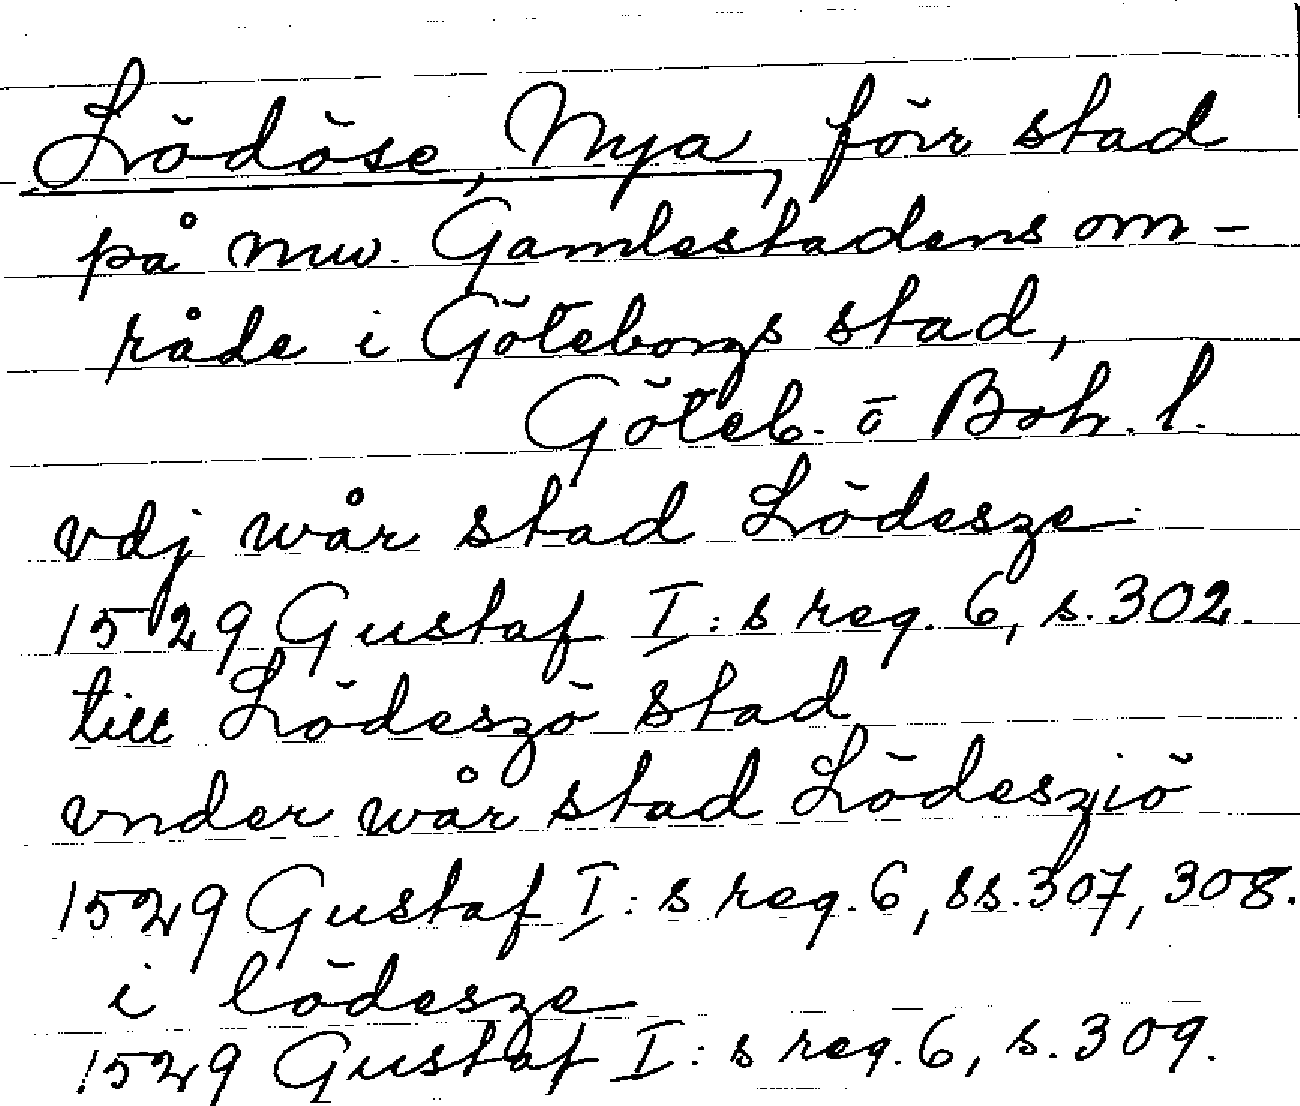 Lödöse, Nya, förr stad
på nuv. Gamlestadens om-
råde i Göteborgs stad,
Göteb. o Boh. l.
vdj wår stad Lödesze
1529 Gustaf I:s reg. 6, s. 302.
till Lödeszö stad
vnder wår stad Lödesziö
1529 Gustaf I:s reg. 6, ss. 307, 308.
i lödesze
1529 Gustaf I:s reg. 6, s. 309.